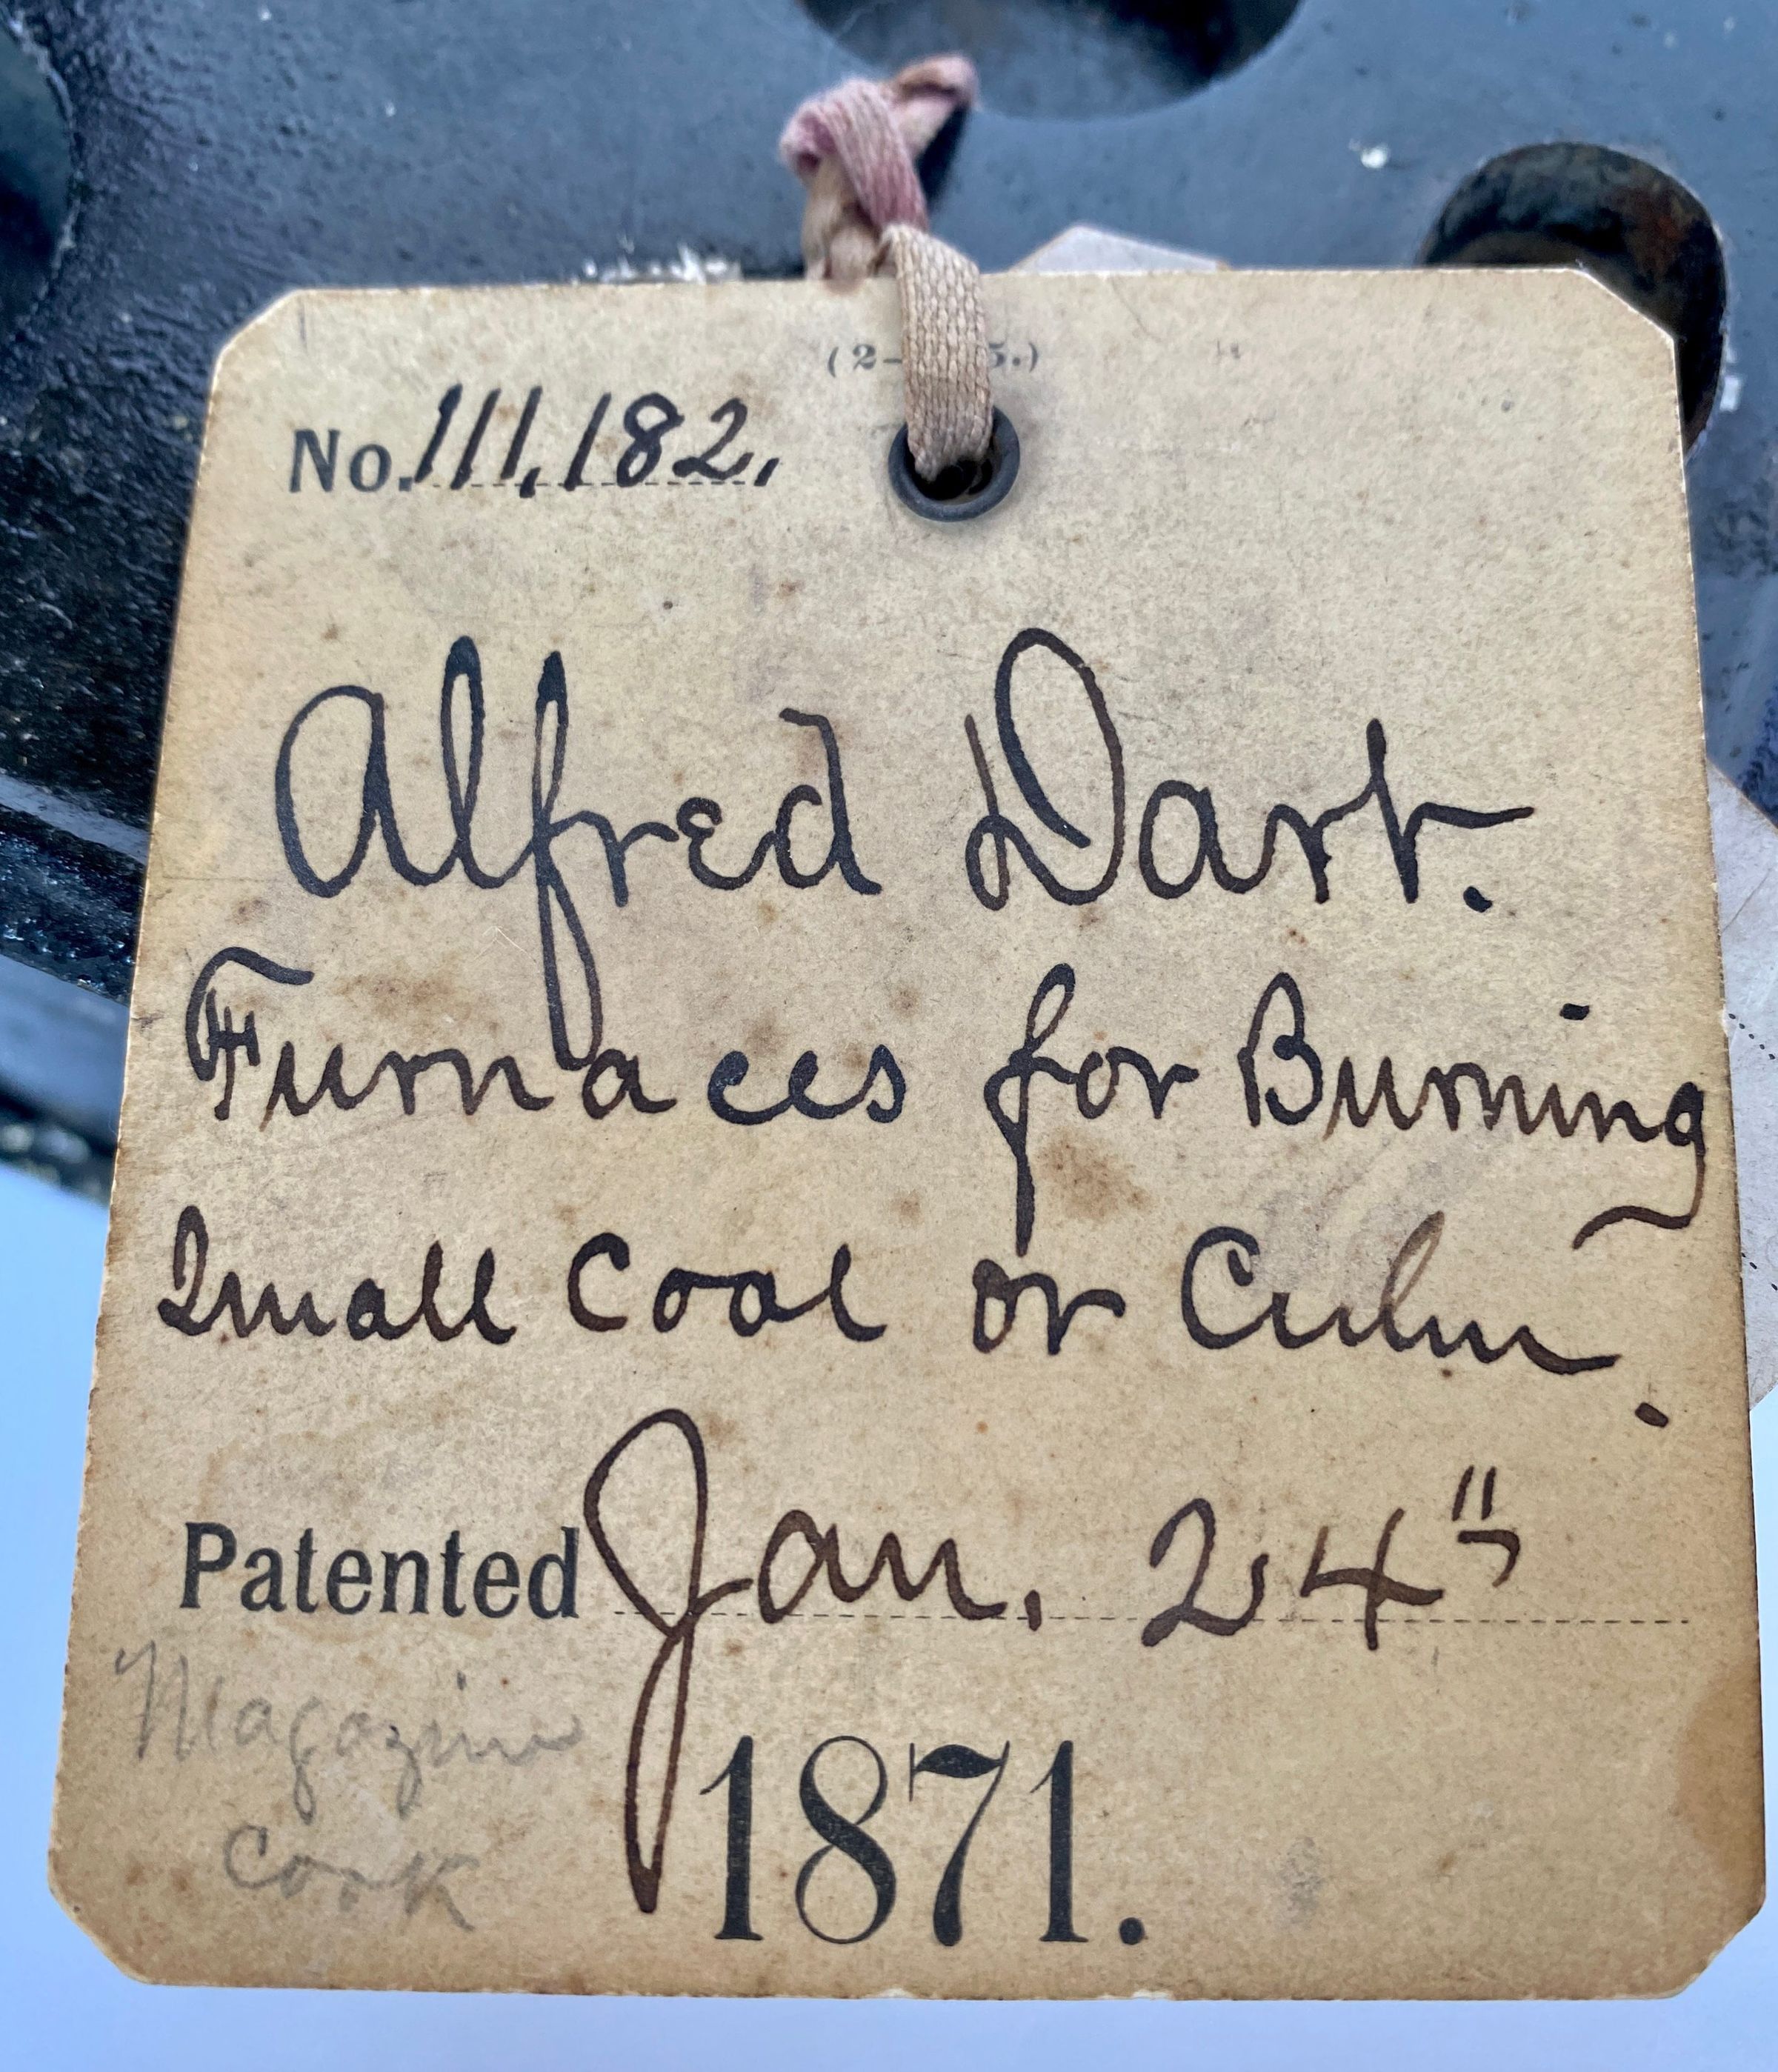 (2- 5.)
No. 111,182.
Alfred Dart.
Furnaces for Burning
Small Coal or Culm.
Patented Jan. 24"
Magazine
Cook
1871.